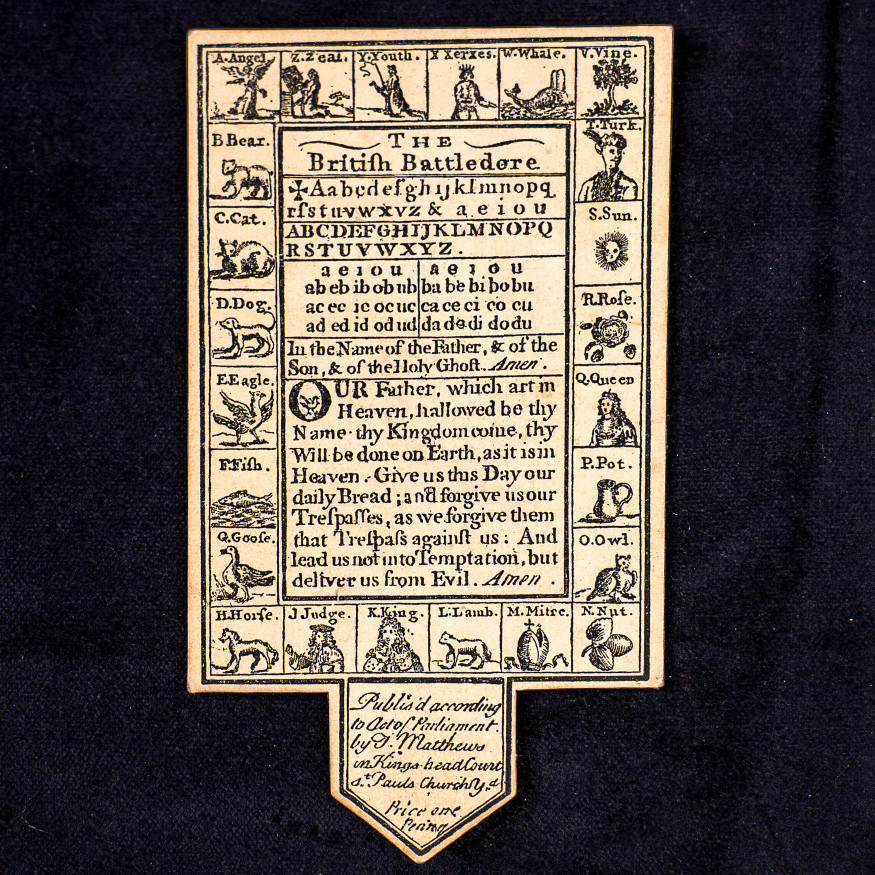 A.Angel. Z.Zeal. Y.Youth. X Xerxes. W.Whale. V.Vine.
B Bear.
C.Cat.
D.Dog.
E.Eagle.
F.Fiſh.
G.Gooſe.
H.Horſe. J Judge. K.King. L.Lamb. M.Mitre. N.Nut.
T.Turk.
S.Sun.
R.Roſe.
Q.Queen
P.Pot.
O.Owl.
THE
Britiſh Battledore
✠Aabcdefghijklmnopq
rſstuvwxyz & a e i o u
ABCDEFGHIJKLMNOPQ
RSTUVWXYZ.
a e i o u a e i o u
ab eb ib ob ub ba be bi bo bu
ac ec ic oc uc ca ce ci co cu
ad ed id od ud da de di do du
In the Name of the Father, & of the
Son, & of the Holy Ghoſt. Amen.
OUR Father, which art in
Heaven, hallowed be thy
Name· thy Kingdom come, thy
Will be done on Earth, as it is in
Heaven. Give us this Day our
daily Bread; and forgive us our
Treſpaſſes, as we forgive them
that Treſpaſs againſt us: And
lead us not into Temptation, but
deliver us from Evil. Amen.
Publis'd according
to Act of Parliament.
by J. Matthews
in Kings-head Court
St. Pauls Church Yd.
Price one
Penny